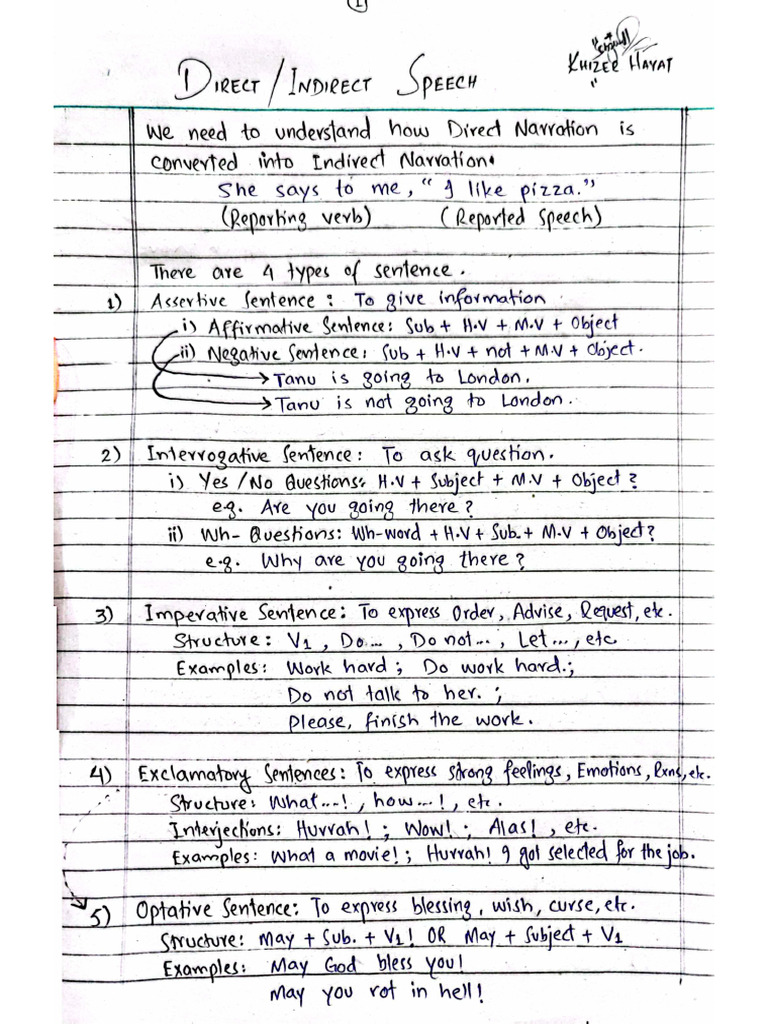 1
DIRECT / INDIRECT SPEECH
KHIZER HAYAT
We need to understand how Direct Narration is
converted into Indirect Narration.
She says to me, "I like pizza."
(Reporting verb) (Reported speech)
There are 4 types of sentence.
1) Assertive Sentence: To give information
i) Affirmative Sentence: Sub + H.V + M.V + Object
ii) Negative Sentence: Sub + H.V + not + M.V + Object.
Tanu is going to London.
Tanu is not going to London.
2) Interrogative Sentence: To ask question.
i) Yes / No Questions: H.V + Subject + M.V + Object?
e.g. Are you going there?
ii) Wh- Questions: Wh-word + H.V + Sub. + M.V + Object?
e.g. Why are you going there?
3) Imperative Sentence: To express Order, Advise, Request, etc.
Structure: V1, Do..., Do not..., Let..., etc
Examples: Work hard; Do work hard.;
Do not talk to her.;
Please, finish the work.
4) Exclamatory Sentences: To express strong feelings, Emotions, Rxns, etc.
Structure: What...!, how...!, etc.
Interjections: Hurrah!; Wow!; Alas!, etc.
Examples: What a movie!; Hurrah! I got selected for the job.
5) Optative Sentence: To express blessing, wish, curse, etc.
Structure: May + Sub. + V1! OR May + Subject + V1
Examples: May God bless you!
May you rot in hell!